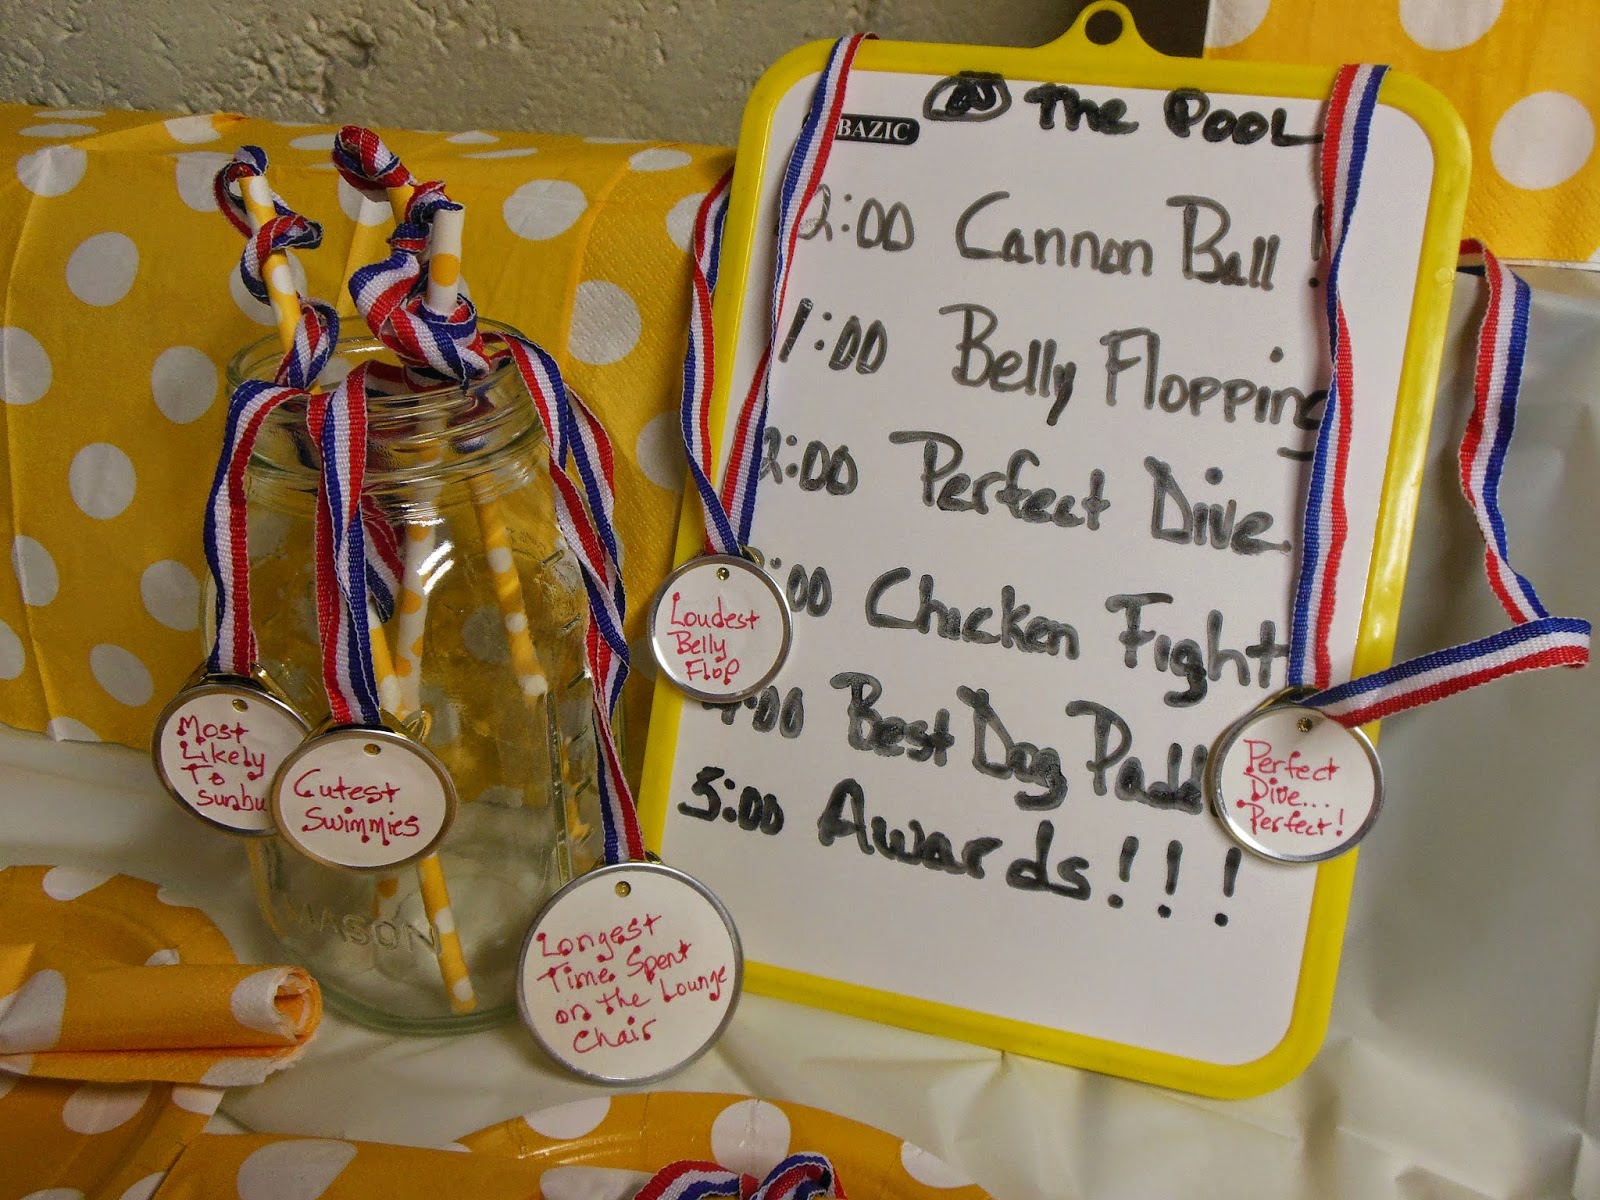 @ The Pool
BAZIC
2:00 Cannon Ball !
1:00 Belly Flopping
2:00 Perfect Dive
:00 Chicken Fight
4:00 Best Dog Padd
5:00 Awards!!!
Loudest
Belly
Flop
Most
Likely
To
sunbu
Cutest
Swimmies
Longest
Time Spent
on the Lounge
Chair
Perfect
Dive...
Perfect!
MASON